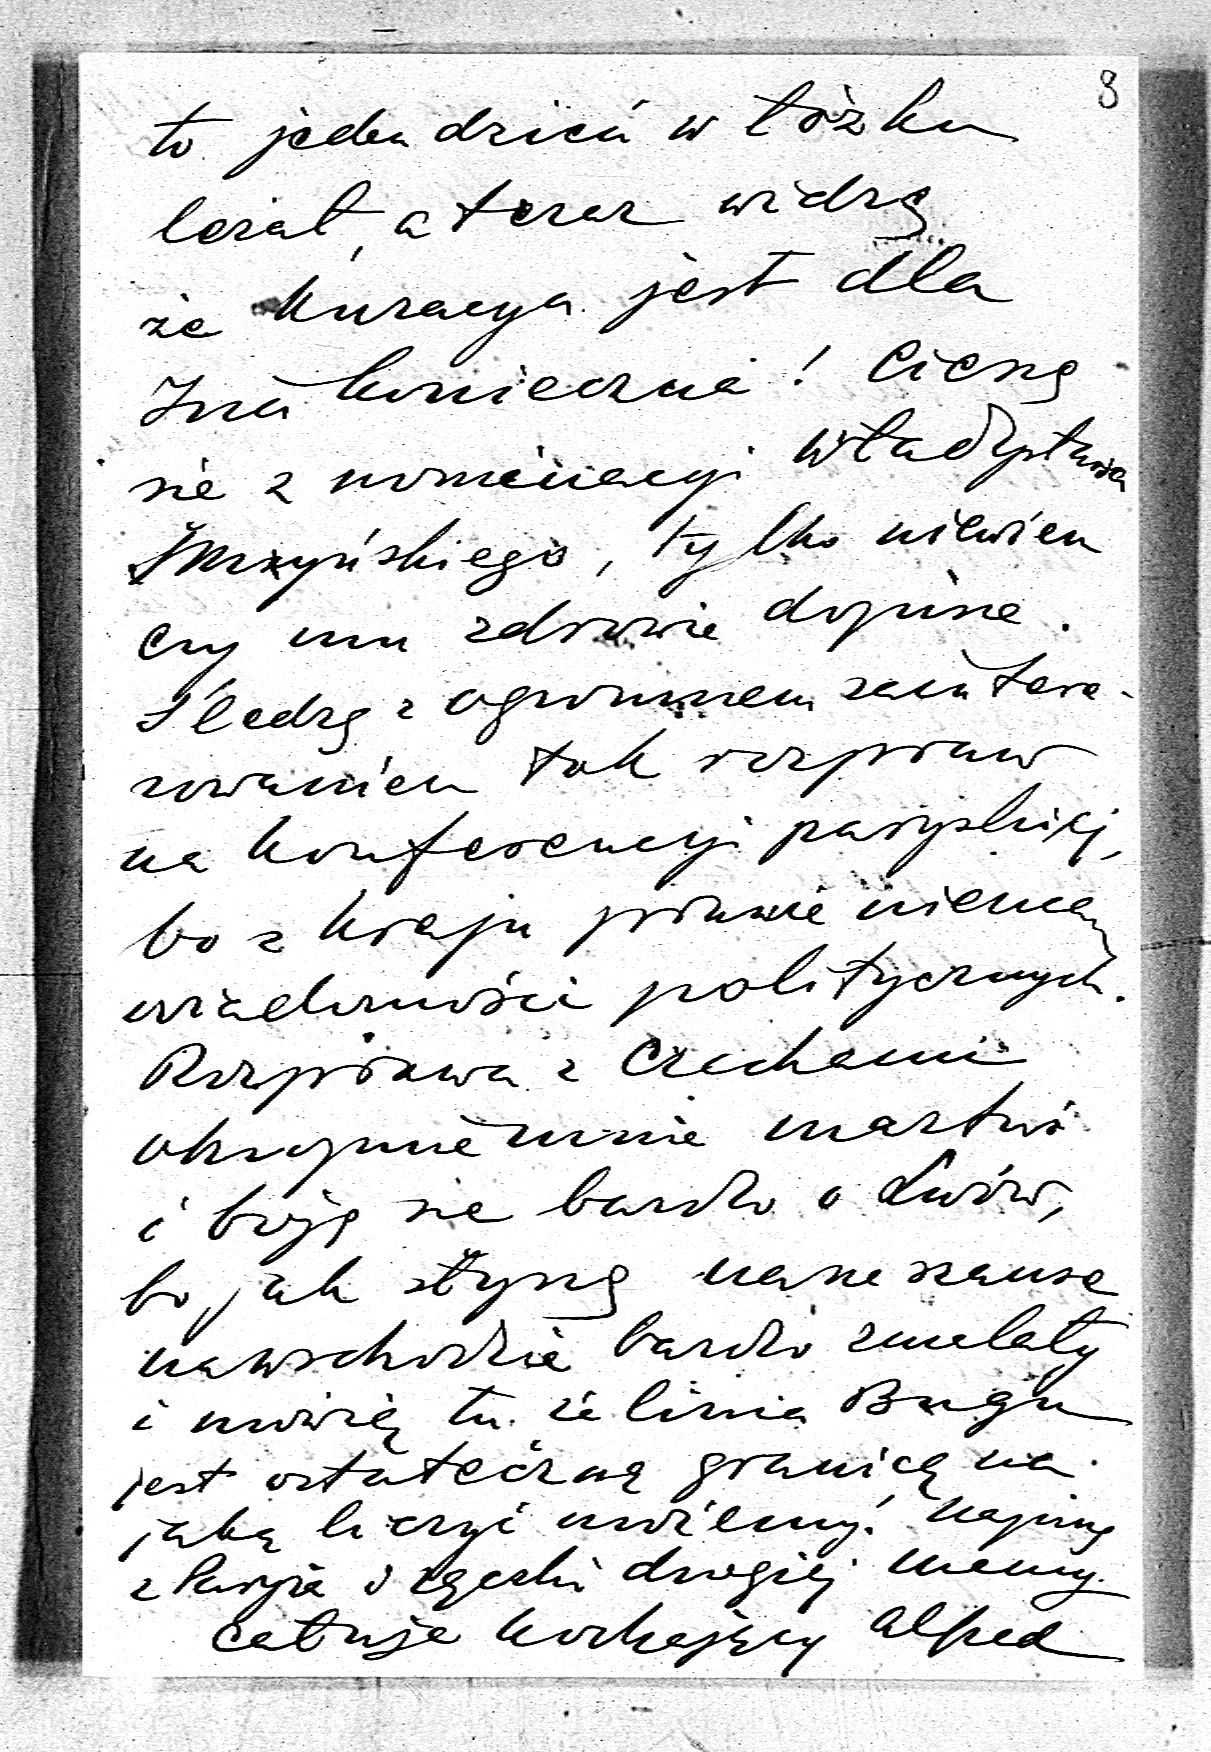 8
to jeden dzień w łóżku
leżał, a teraz widzę
że kuracya jest dla
Inú konieczna! Cieszę
się z nominacyi Władysława
Skrzyńskiego, tylko niewiem
czy mu zdrowie dopisze.
Śledzę z ogromnem zaintere-
sowaniem tok rozpraw
na konferencyi paryskiej,
bo z kraju prawie niemam
wiadomości politycznych.
Rozprawa z Czechami
okropnie mnie martwi
i boję się bardzo o Lwów,
bo jak słyszę nasze szanse
nawschodzie bardzo zmalały
i mówią tu że linia Bugu
jest ostateczną granicą na
jaką liczyć możemy! Napiszę
z Paryża o rączki drogiej mamy.
całuję kochający Alfred